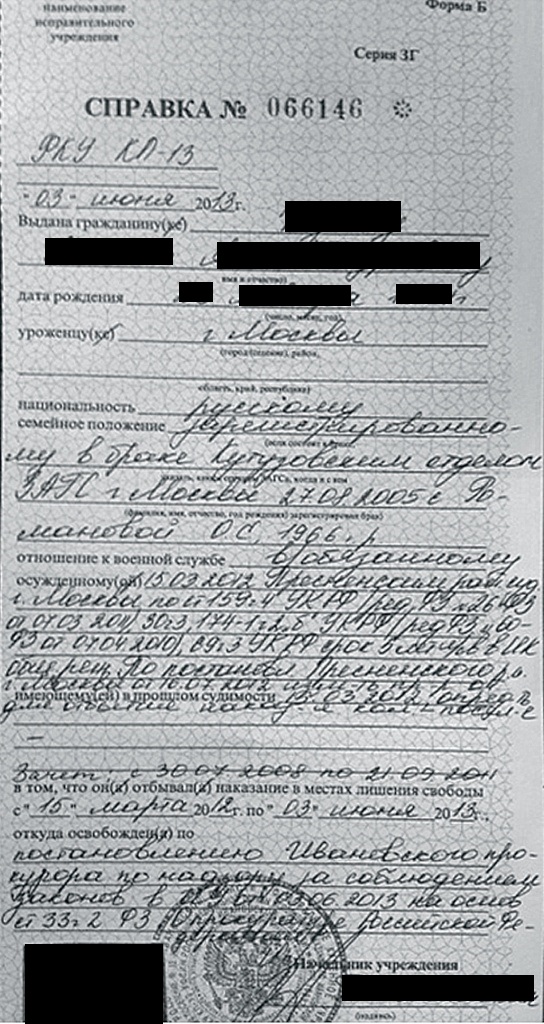 наименование
исправительного
учреждения
Форма Б
Серия ЗГ
СПРАВКА № 066146
ФКУ КП-13
"03" июня 2013г.
Выдана гражданину(ке)
имя и отчество)
дата рождения
(число, месяц, год)
уроженцу(ке) г Москвы
(город (селение), район,
область, край, республика)
национальность русскому
семейное положение зарегистрированно-
(если состоит в браке,
му в браке Кутузовским отделом
ЗАГС г Москвы 27.08.2005 с Ро-
(фамилия, имя, отчество, год рождения) зарегистрирован брак)
мановой О С, 1966 г.р
отношение к военной службе в/обязанному
осужденному(ой) 15.03 2012 Пресненским рай суд
г. Москвы по ст 159ч4 УК РФ (ред ФЗ №26-ФЗ
от 07.03 2011) 30ч3, 174-1ч2 УК РФ (ред ФЗ
ФЗ от 07.04 2010), 69ч3 УК РФ срок 5 лет в ИК
общ реж. По постанов Пресненского р.с.
г. Москвы от
имеющему(ей) в прошлом судимости
для отбытия наказ-я
–
Зачет: с 30 07 2008 по 21 09 2011
в том, что он(а) отбывал(а) наказание в местах лишения свободы
с "15" марта 2012г. по "03" июня 2013г.,
откуда освобожден(а) по
постановлению Ивановского про-
курора по надзору за соблюдением
законов в ИУ от 03.06 2013 на основ
ст 33ч 2 ФЗ О прокуратуре Российской Фе-
дерации
Начальник учреждения
(подпись)